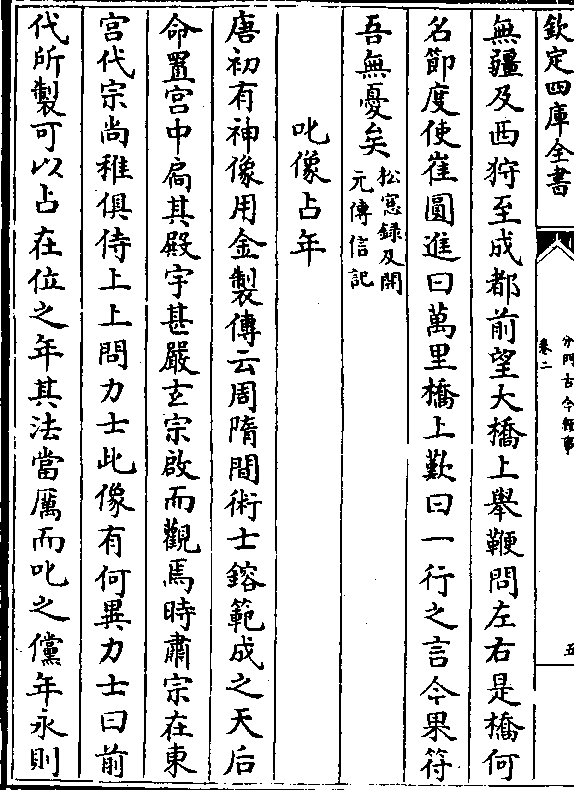 欽定四庫全書
分門古今類事
卷二
五
無疆及西狩至成都前望大橋上舉鞭問左右是橋何
名節度使崔圓進曰萬里橋上歎曰一行之言今果符
吾無憂矣松窻録及開
元傳信記
叱像占年
唐初有神像用金製傳云周隋間術士鎔範成之天后
命置宫中扄其殿宇甚嚴玄宗啟而觀焉時肅宗在東
宫代宗尚稚俱侍上上問力士此像有何異力士曰前
代所製可以占在位之年其法當厲而叱之儻年永則